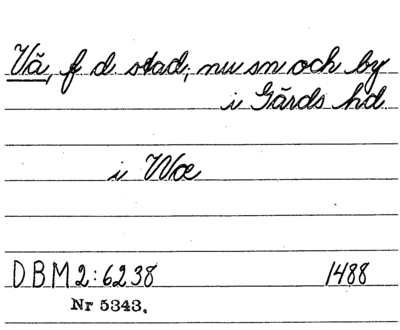 Vä, f d stad; nu sn och by
i Gärds hd
i Wæ
DBM 2:6238 1488
Nr 5343.